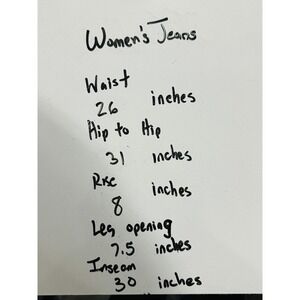 Women's Jeans
Waist
26 inches
Hip to Hip
31 inches
Rise
8 inches
Leg opening
7.5 inches
Inseam
30 inches